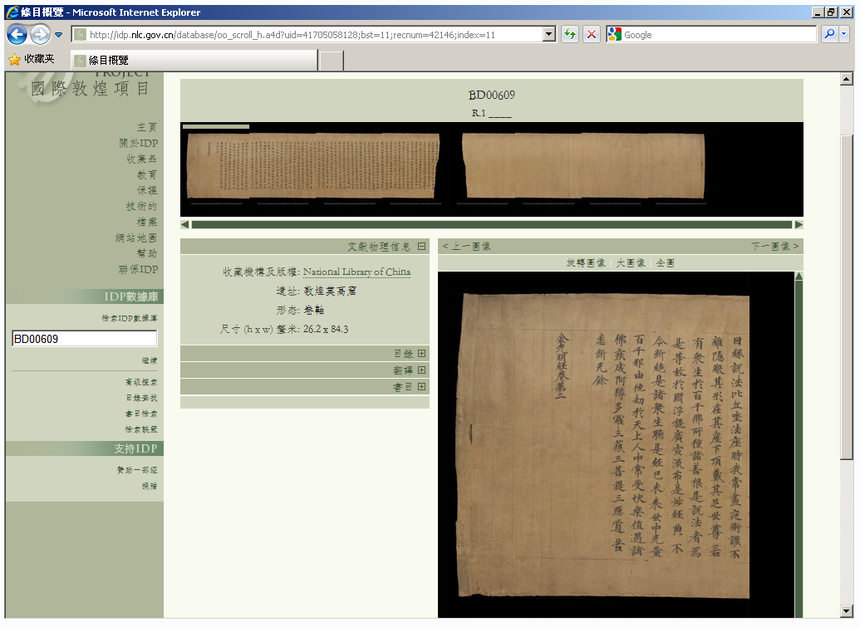 條目概覽 - Microsoft Internet Explorer
http://idp.nlc.gov.cn/database/oo_scroll_h.a4d?uid=41705058128;bst=11;recnum=42146;index=11
Google
收藏夹
條目概覽
PROJECT
國際敦煌項目
主頁
關於IDP
收集品
教育
保護
技術的
檔案
網站地圖
幫助
聯係IDP
IDP數據庫
檢索IDP數據庫
BD00609
繼續
高級搜索
目錄查找
書目檢索
檢索訣竅
支持IDP
贊助一部經
捐贈
BD00609
R.1 ____
文獻物理信息
收藏機構及版權: National Library of China
遺址: 敦煌莫高窟
形态: 卷軸
尺寸 (h x w) 釐米: 26.2 x 84.3
目錄
翻譯
書目
< 上一圖像
下一圖像 >
旋轉圖像 大圖像 全圖
因緣說法比丘坐法座時我當晝夜衛護不
離隱蔽其形在其座下頂戴其足世尊若
有衆生於百千佛所種諸善根是說法者爲
是等故於閻浮提廣宣流布是妙經典不
令斷絕是諸衆生聽是經已未來世中無量
百千那由他劫於天上人中常受快樂值遇諸
佛疾成阿耨多羅三藐三菩提三惡道苦
悉斷無餘
金光明經卷第二